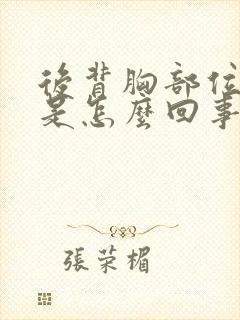 後背胸部位
是怎麼回事
張荣楣